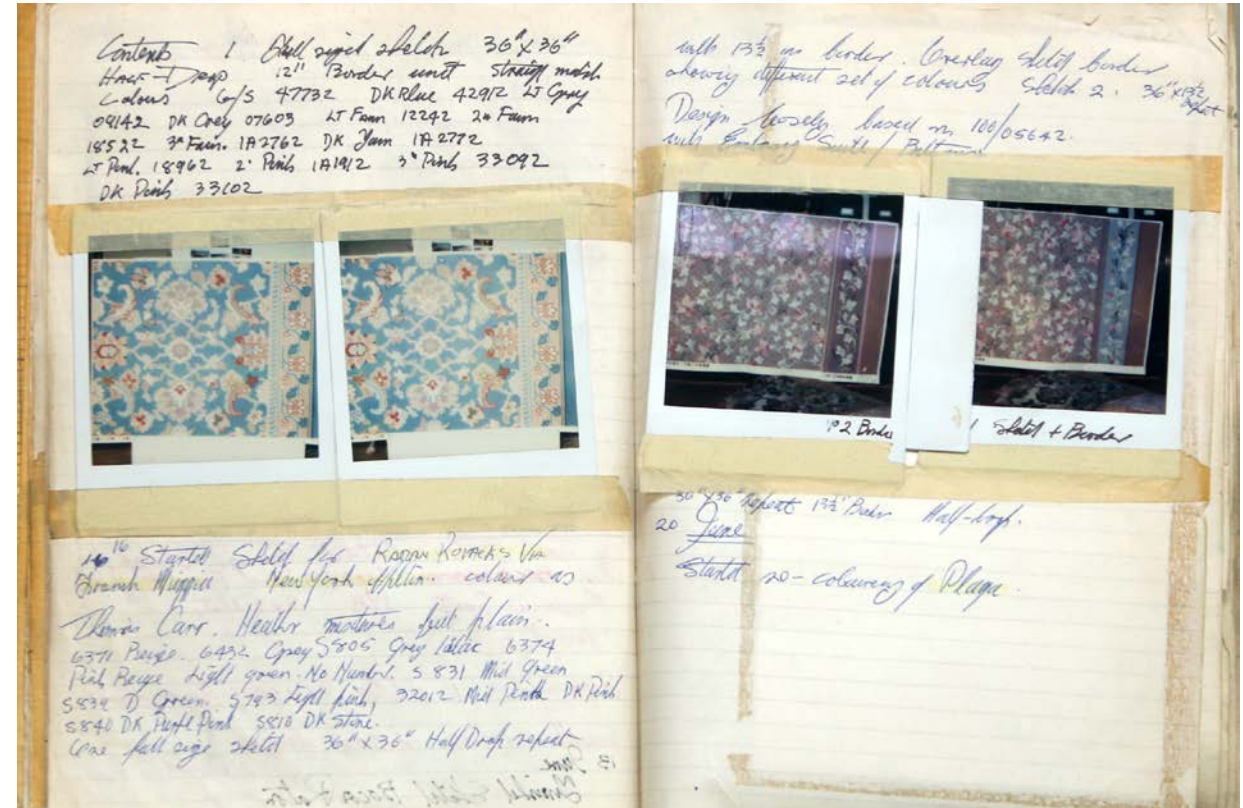 Contents 1 full sized sketch 36" X 36"
HALF-Drop 12" Border unit Straight match
Colours G/S 47732 DK Blue 42912 LT Grey
04142 DK Grey 07603 LT Fawn 12242 2nd Fawn
18522 3rd Fawn. 1A2762 DK Fawn 1A2772
LT Pink. 18962 2" Pink 1A1912 3" Pink 33092
DK Pink 33102
16 Started Sketch for KOVACKS Via
New York colours as
Thomas Carr. Heather mixtures but plain.
6371 Beige. 6432 Grey 5805 Grey lilac 6374
Pink Beige Light green. No Number. 5831 Mid green
5839 D Green. 5793 Light pink, 32012 Mid Pink DK Pink
5840 DK Purple Pink 5810 DK Stone.
One full size sketch 36" X 36" Half Drop repeat
13 June
with 13½ ins border. Overlay sketch border
showing different set of colours Sketch 2. 36" X 13½
repeat
Design loosely based on 100/05642.
with
No 2 Border
1 Sketch + Border
36" X 36" repeat 13½" Half-drop.
20 June
Started re-colouring of Plaga.